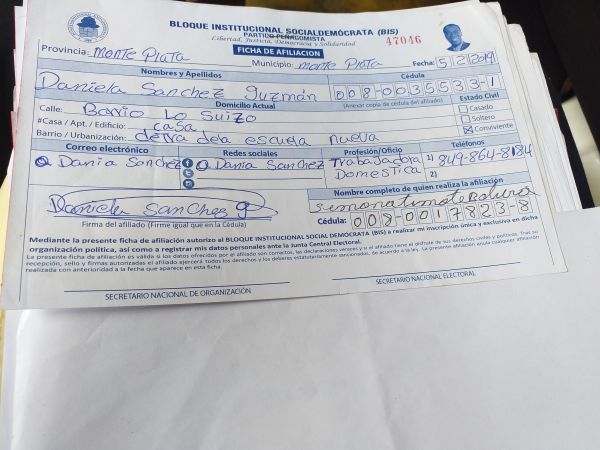 BLOQUE INSTITUCIONAL SOCIALDEMÓCRATA (BIS)
PARTIDO PEÑAGOMISTA
Libertad, Justicia, Democracia y Solidaridad
47046
FICHA DE AFILIACION
Provincia: Monte Plata Municipio: Monte Plata Fecha: 5/2/2019
Nombres y Apellidos Cédula
Daniela Sanchez Guzmán 008-0035533-1
Domicilio Actual (Anexar copia de cédula del afiliado) Estado Civil
Calle: Barrio Lo Suizo Casado
#Casa / Apt. / Edificio: casa Soltero
Barrio / Urbanización: detra dela escuela nueva Conviviente
Correo electrónico Redes sociales Profesión/Oficio Teléfonos
Dania Sanchez Dania Sanchez Trabajadora Domestica 1) 849-864-8134
2)
Daniela Sanches g
Nombre completo de quien realiza la afiliación
Firma del afiliado (Firme igual que en la Cédula)
Cédula: 008-0017823-8
Mediante la presente ficha de afiliación autorizo al BLOQUE INSTITUCIONAL SOCIAL DEMÓCRATA (BIS) a realizar mi inscripción única y exclusiva en dicha
organización política, así como a registrar mis datos personales ante la Junta Central Electoral.
La presente ficha de afiliación es válida si los datos ofrecidos por el afiliado son correctos, las declaraciones veraces y si el afiliado tiene el disfrute de sus derechos civiles y políticos. Tras su
recepción, sello y firmas autorizadas el afiliado ejercerá todos los derechos y los deberes estatutariamente sancionados, de acuerdo a la ley. La presente afiliación anula cualquier afiliación
realizada con anterioridad a la fecha que aparece en esta ficha.
SECRETARIO NACIONAL DE ORGANIZACIÓN SECRETARIO NACIONAL ELECTORAL